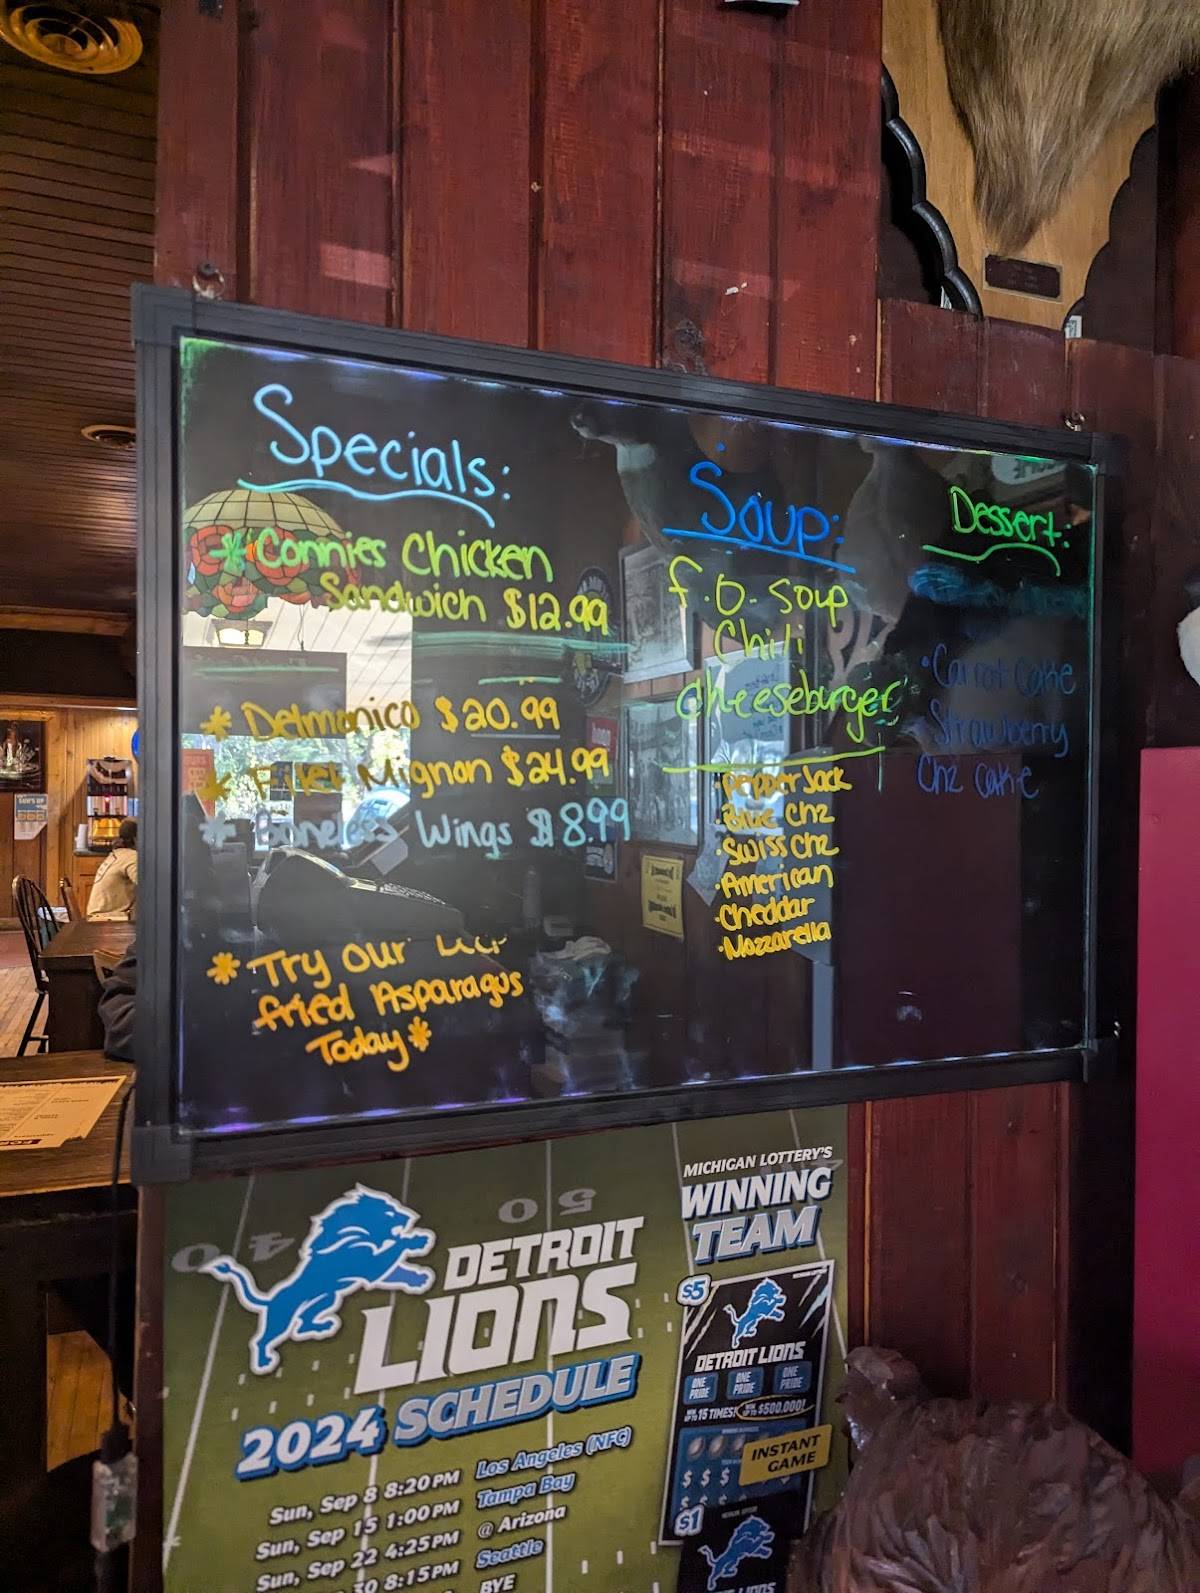 Specials:
* Connies Chicken
Sandwich $12.99
* Delmonico $20.99
* Filet Mignon $24.99
* Boneless Wings $8.99
* Try our Deep
fried Asparagus
Today *
Soup:
f.O. Soup
Chili
Cheeseburger
• Pepper Jack
• Blue Chz
• Swiss Chz
• American
• Cheddar
• Mozzarella
Dessert:
• Carrot Cake
• Strawberry
Chz Cake
40
50
DETROIT
LIONS
2024 SCHEDULE
Sun, Sep 8 8:20 PM Los Angeles (NFC)
Sun, Sep 15 1:00 PM Tampa Bay
Sun, Sep 22 4:25 PM @ Arizona
30 8:15 PM Seattle
BYE
MICHIGAN LOTTERY'S
WINNING
TEAM
$5
DETROIT LIONS
ONE PRIDE ONE PRIDE ONE PRIDE
WIN UP TO 15 TIMES! WIN UP TO $500,000!
INSTANT
GAME
$ $ $
$1